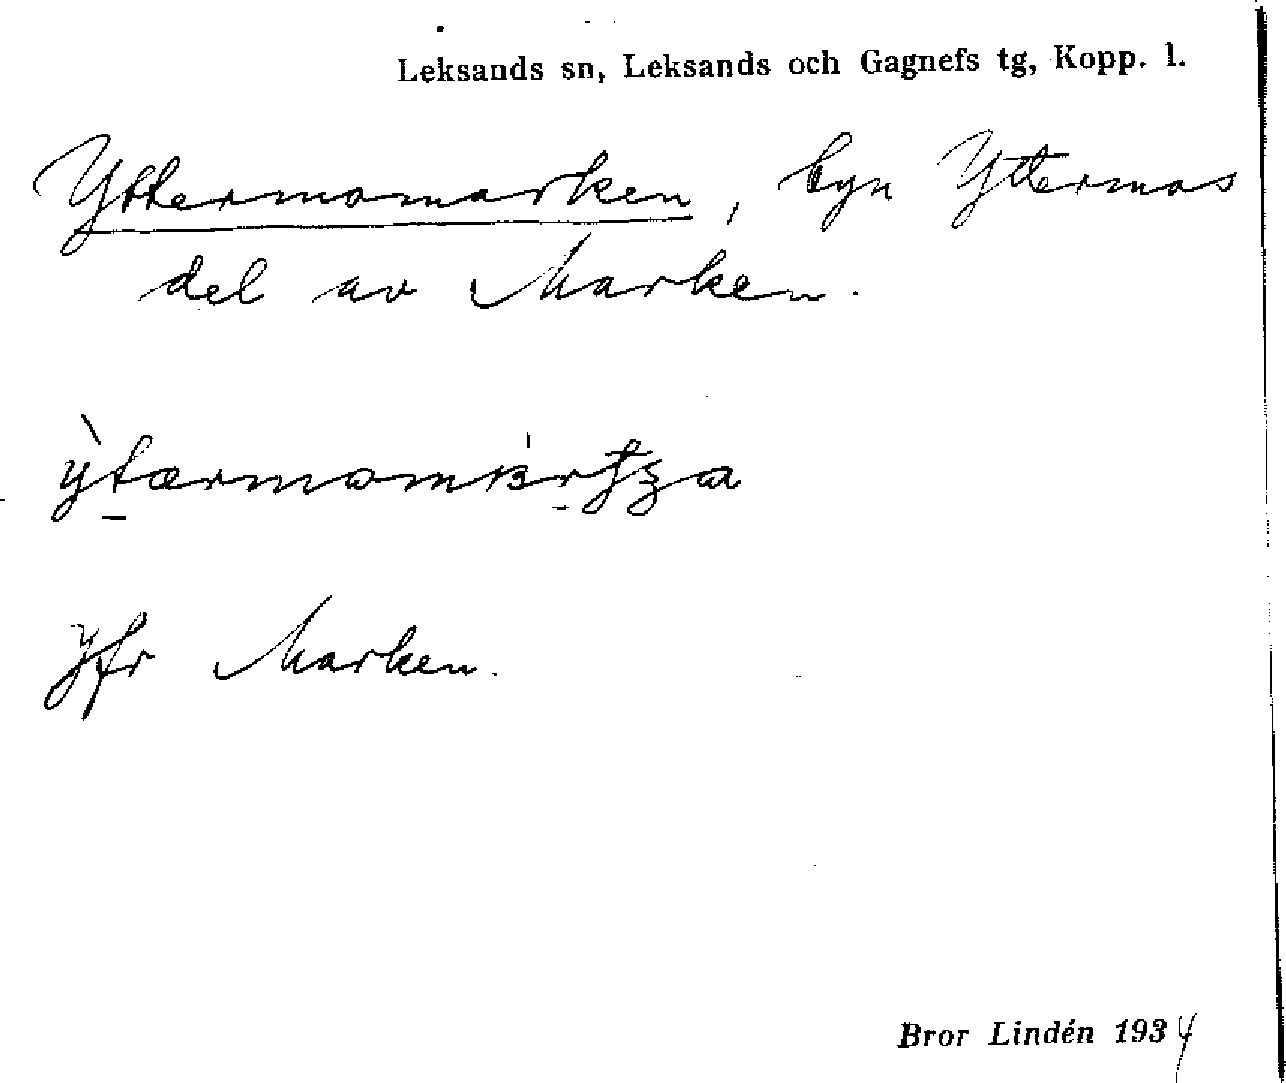 Leksands sn, Leksands och Gagnefs tg, Kopp. l.
Yttermomarken, byn Yttermos
del av Marken.
Jfr Marken.
Bror Lindén 1934